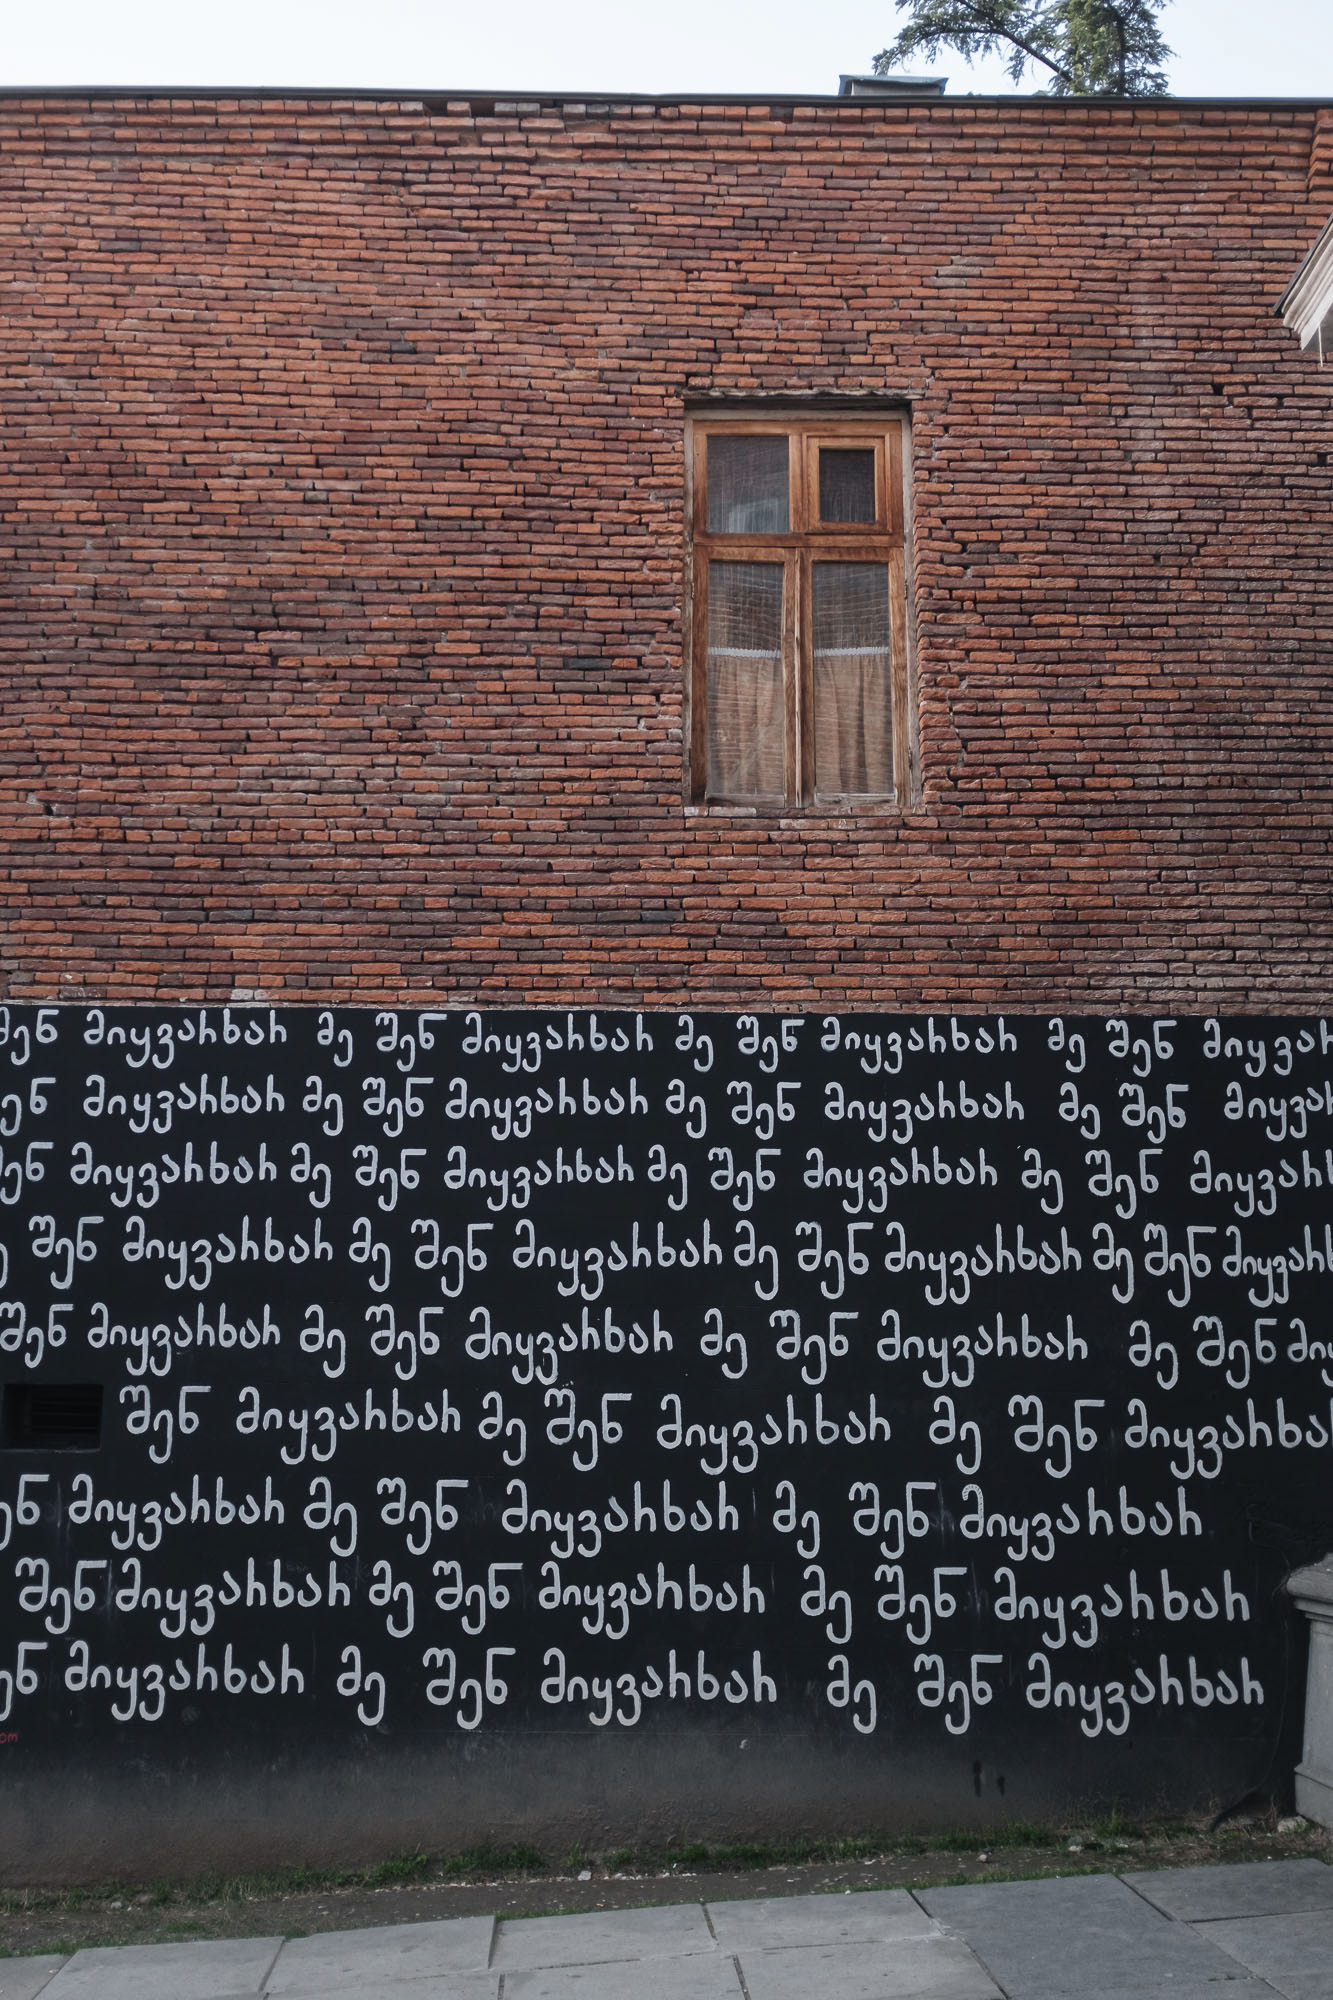 შენ მიყვარხარ მე შენ მიყვარხარ მე შენ მიყვარხარ მე შენ მიყვარ
ენ მიყვარხარ მე შენ მიყვარხარ მე შენ მიყვარხარ მე შენ მიყვარ
ენ მიყვარხარ მე შენ მიყვარხარ მე შენ მიყვარხარ მე შენ მიყვარ
შენ მიყვარხარ მე შენ მიყვარხარ მე შენ მიყვარხარ მე შენ მიყვარხ
შენ მიყვარხარ მე შენ მიყვარხარ მე შენ მიყვარხარ მე შენ მიყ
შენ მიყვარხარ მე შენ მიყვარხარ მე შენ მიყვარხა
ენ მიყვარხარ მე შენ მიყვარხარ მე შენ მიყვარხარ
შენ მიყვარხარ მე შენ მიყვარხარ მე შენ მიყვარხარ
ენ მიყვარხარ მე შენ მიყვარხარ მე შენ მიყვარხარ
om